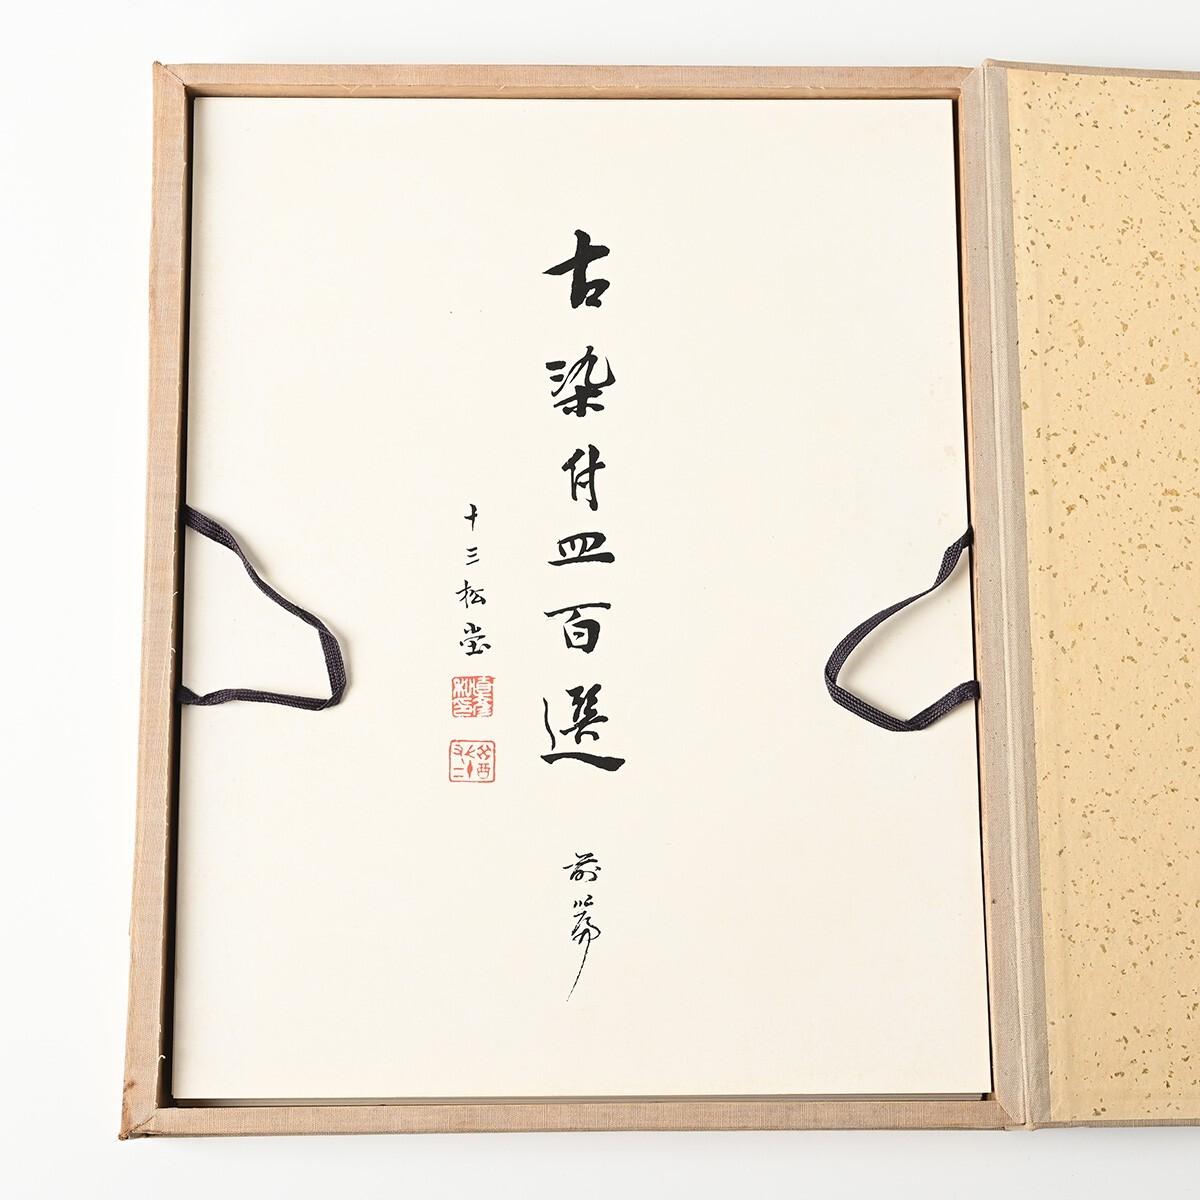 古染付皿百選 前篇
十三松堂